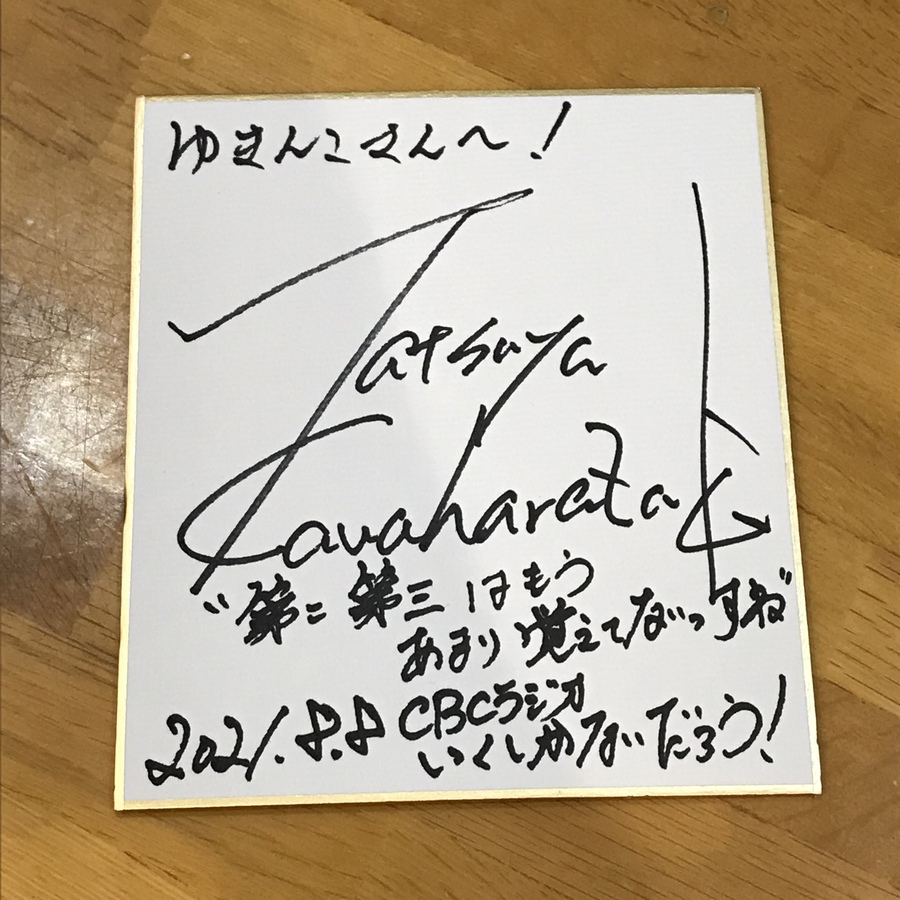 ゆきんこさんへ!
Tatsuya
Kawaharazuka
"第二第三はもう
あまり覚えてないっすね"
2021.8.8 CBCラジオ
いくしかないだろう!